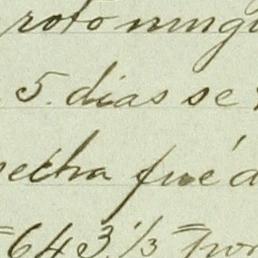 roto ningu
5. dias se
echa fué d
=643 1/3=por